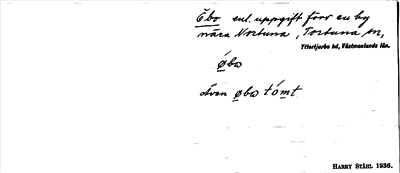 Öbo enl. uppgift förr en by
nära Nortuna, Tortuna sn,
Yttertjurbo hd, Västmanlands län.
øbω
även øbω tómt
HARRY STÅHL 1936.